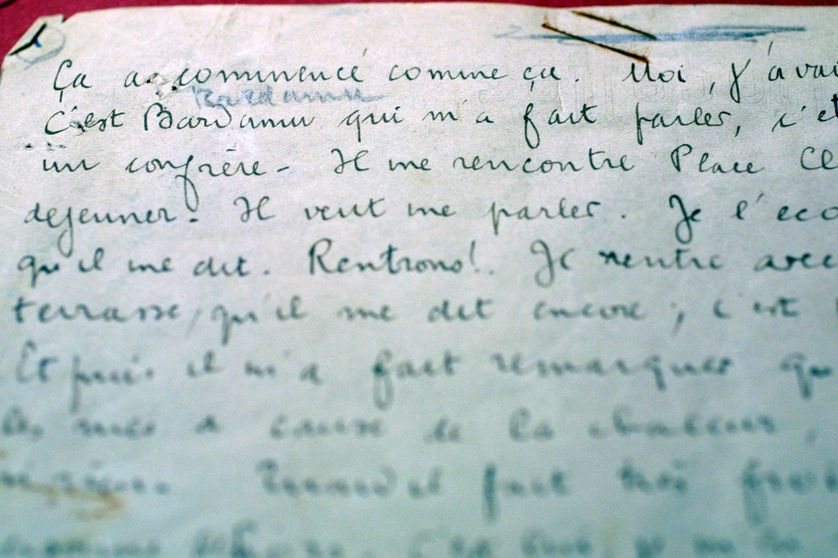 Ça a commencé comme ça. Moi, j'avai
Bardamu
C'est Bardamu qui m'a fait parler, c'et
un confrère - Il me rencontre Place Cl
dejeuner - Il veut me parler. Je l'eco
qu'il me dit. Rentrons! Je rentre avec
terrasse, qu'il me dit encore ; c'est
Et puis il m'a fait remarquer qu
les rues a cause de la chaleur,
Quand il fait très froi